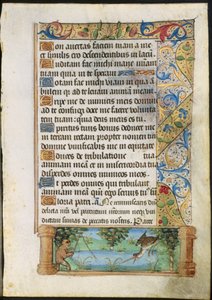 Non avertas faciem tuam a me
et similis ero descendentibus i lacū
Auditam fac michi mane misericordiam
tuam quia in te speravi
Notam fac michi viam in qua am
bulem quia ad te levavi animam meam
Eripe me de inimicis meis domine
ad te confugi doce me facere volunta
tem tuam quia deus meus es tu
Spiritus tuus bonus deducet me
in terram rectam propter nomen
tuum domine vivificabis me in equitate
Educes de tribulatione
animam meā et in misericordia tua
disperdes omnes inimicos meos
Et perdes omnes qui tribulant
animam meā qm̄ ego servus tuus sū
Gloria patri Ne reminiscaris dñe
delicta nr̄a vel parentum nostrorum neqz vin
dictam sumas de peccatis nostris Pater